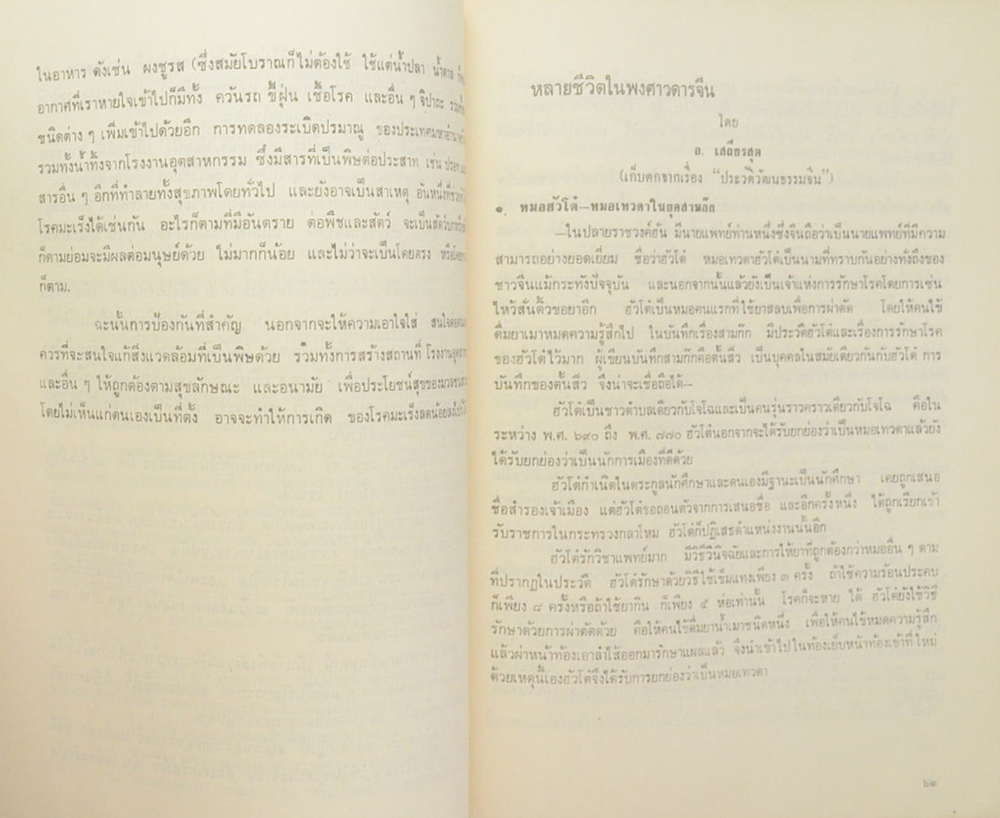 ในอาหาร ดังเช่น ผงชูรส (ซึ่งสมัยโบราณก็ไม่ต้องใช้ ใช้แต่น้ำปลา น้ำตาล
อากาศที่เราหายใจเข้าไปก็มีทั้ง ควันรถ ขี้ฝุ่น เชื้อโรค และอื่น ๆ จิปาถะ
ชนิดต่าง ๆ เพิ่มเข้าไปด้วยอีก การทดลองระเบิดปรมาณู ของประเทศมหาอำนาจ
รวมทั้งน้ำทิ้งจากโรงงานอุตสาหกรรม ซึ่งมีสารที่เป็นพิษต่อประสาท เช่น ปรอท
สารอื่น ๆ อีกที่ทำลายทั้งสุขภาพโดยทั่วไป และยังอาจเป็นสาเหตุ อันหนึ่งที่
โรคมะเร็งได้เช่นกัน อะไรก็ตามที่มีอันตราย ต่อพืชและสัตว์ จะเป็นสัตว์บก
ก็ตามย่อมจะมีผลต่อมนุษย์ด้วย ไม่มากก็น้อย และไม่ว่าจะเป็นโดยตรง หรือ
ก็ตาม.
ฉะนั้นการป้องกันที่สำคัญ นอกจากจะให้ความเอาใจใส่ สนใจ
ควรที่จะสนใจแก้สิ่งแวดล้อมที่เป็นพิษด้วย รวมทั้งการสร้างสถานที่ โรงงาน
และอื่น ๆ ให้ถูกต้องตามสุขลักษณะ และอนามัย เพื่อประโยชน์สุขของมวล
โดยไม่เห็นแก่ตนเองเป็นที่ตั้ง อาจจะทำให้การเกิด ของโรคมะเร็งลดน้อยลง
หลายชีวิตในพงศาวดารจีน
โดย
ล. เสถียรสุต
(เก็บตกจากเรื่อง "ประวัติวัฒนธรรมจีน")
๑. หมอฮัวโต๋—หมอเทวดาในยุคสามก๊ก
—ในปลายราชวงค์ฮั่น มีนายแพทย์ท่านหนึ่งซึ่งจีนถือว่าเป็นนายแพทย์ที่มีความ
สามารถอย่างยอดเยี่ยม ชื่อว่าฮัวโต๋ หมอเทวดาฮัวโต๋เป็นนามที่ทราบกันอย่างทั่งถึงของ
ชาวจีนแม้กระทั่งปัจจุบัน และนอกจากนั้นแล้วยังเป็นเจ้าแห่งการรักษาโรคโดยการเซ่น
ไหว้สั่นติ้วขอยาอีก ฮัวโต๋เป็นหมอคนแรกที่ใช้ยาสลบเพื่อการผ่าตัด โดยให้คนไข้
ดื่มยาเมาหมดความรู้สึกไป ในบันทึกเรื่องสามก๊ก มีประวัติฮัวโต๋และเรื่องการรักษาโรค
ของฮัวโต๋ไว้มาก ผู้เขียนบันทึกสามก๊กคือตั้นสิ่ว เป็นบุคคลในสมัยเดียวกันกับฮัวโต๋ การ
บันทึกของตั้นสิ่ว จึงน่าจะเชื่อถือได้—
ฮัวโต๋เป็นชาวตำบลเดียวกับโจโฉและเป็นคนรุ่นราวคราวเดียวกับโจโฉ คือใน
ระหว่าง พ.ศ. ๖๙๐ ถึง พ.ศ. ๗๗๐ ฮัวโต๋นอกจากจะได้รับยกย่องว่าเป็นหมอเทวดาแล้วยัง
ได้รับยกย่องว่าเป็นนักการเมืองที่ดีด้วย
ฮัวโต๋กำเนิดในตระกูลนักศึกษาและตนเองมีฐานะเป็นนักศึกษา เคยถูกเสนอ
ชื่อสำรองเจ้าเมือง แต่ฮัวโต๋ขอถอนตัวจากการเสนอชื่อ และอีกครั้งหนึ่ง ได้ถูกเรียกเข้า
รับราชการในกระทรวงกลาโหม ฮัวโต๋ก็ปฏิเสธตำแหน่งงานนั้นอีก
ฮัวโต๋รักวิชาแพทย์มาก มีวิธีวินิจฉัยและการให้ยาที่ถูกต้องกว่าหมออื่น ๆ ตาม
ที่ปรากฏในประวัติ ฮัวโต๋รักษาด้วยวิธีใช้เข็มแทงเพียง ๓ ครั้ง ถ้าใช้ความร้อนประคบ
ก็เพียง ๘ ครั้งหรือถ้าใช้ยากิน ก็เพียง ๕ ห่อเท่านั้น โรคก็จะหาย ได้ ฮัวโต๋ยังใช้วิธี
รักษาด้วยการผ่าตัดด้วย คือให้คนไข้ดื่มยาน้ำเมาชนิดหนึ่ง เพื่อให้คนไข้หมดความรู้สึก
แล้วผ่าหน้าท้องเอาลำไส้ออกมารักษาแผลแล้ว จึงนำเข้าไปในท้องเย็บหน้าท้องเข้าที่ใหม่
ด้วยเหตุนี้เองฮัวโต๋จึงได้รับการยกย่องว่าเป็นหมอเทวดา